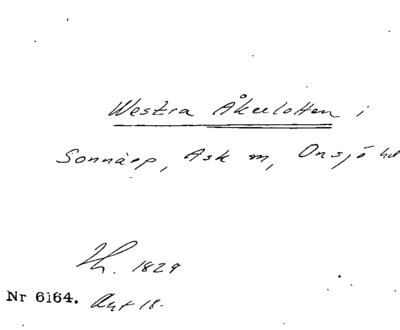 Westra Åkullotten i
Sonnarp, Ask m, Onsjö hd
Th. 1829
Nr 6164. Akt 18.